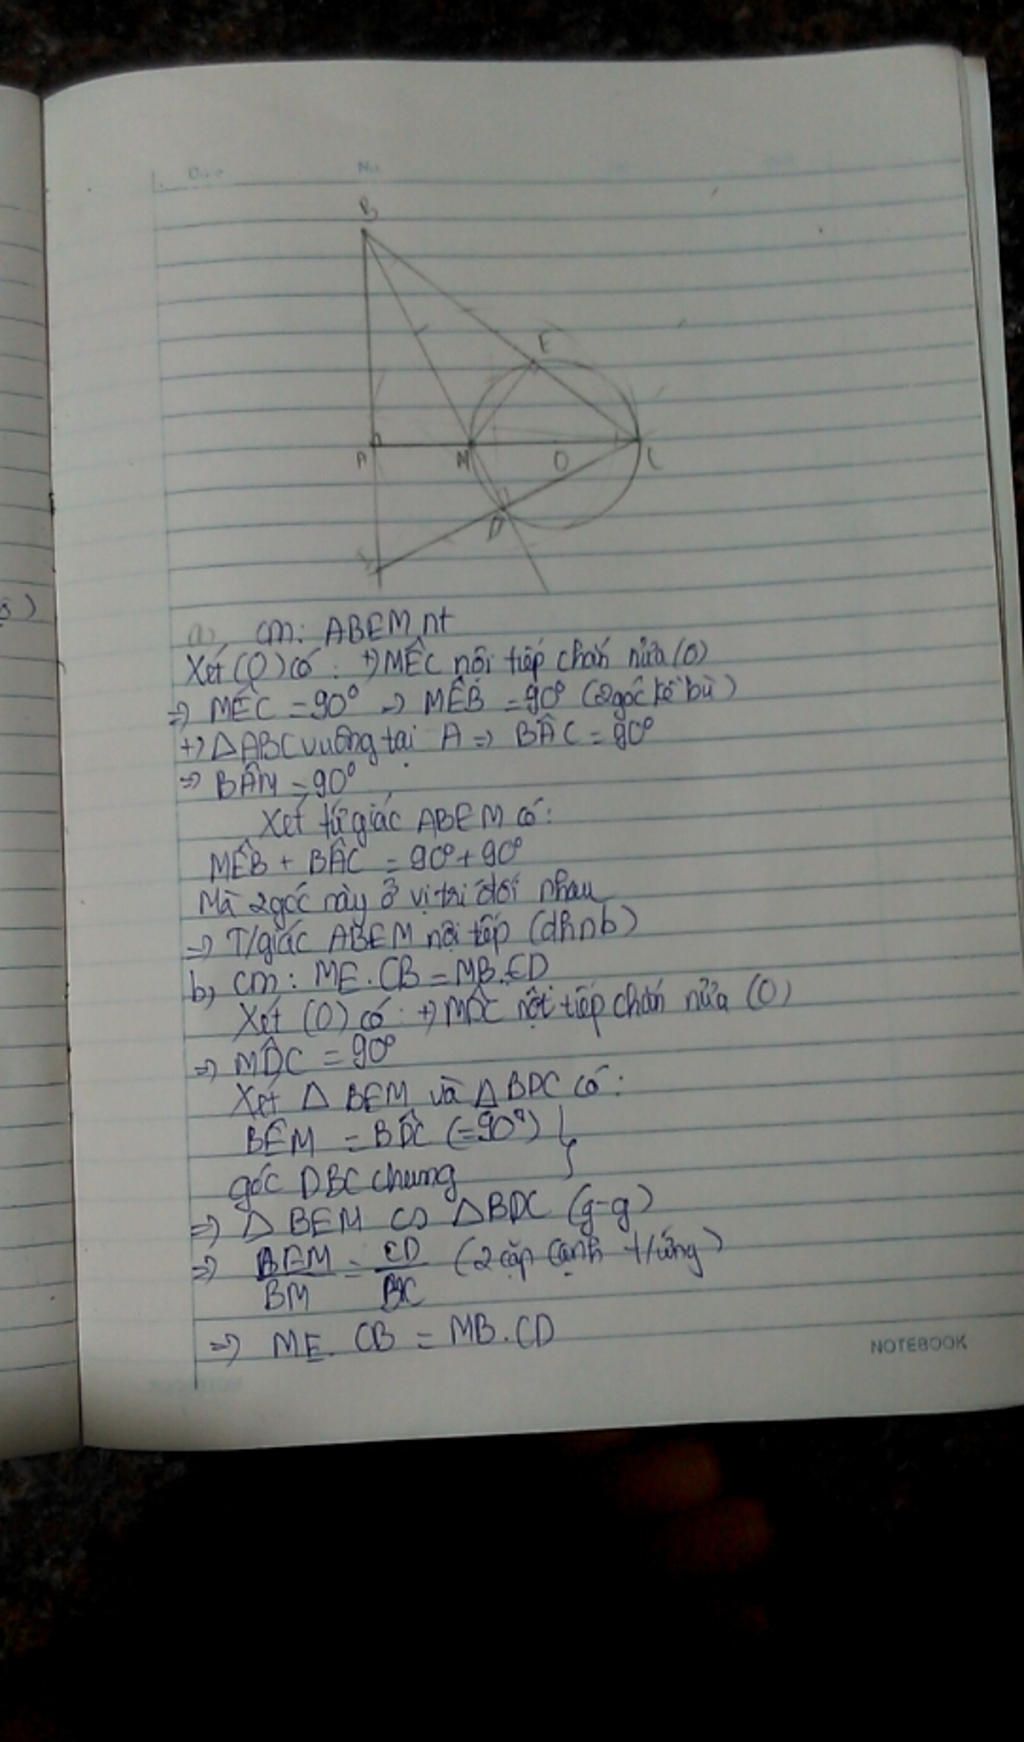 B
E
A
M
O
C
D
a) cm: ABEM nt
Xét (O) có: +) MÊC nội tiếp chắn nửa (O)
=> MÊC = 90° => MÊB = 90° (2 góc kề bù)
+) △ABC vuông tại A => BÂC = 90°
=> BÂM = 90°
Xét tứ giác ABEM có:
MÊB + BÂC = 90° + 90°
Mà 2 góc này ở vị trí đối nhau
=> T/giác ABEM nội tiếp (dhnb)
b, cm: ME.CB = MB.CD
Xét (O) có: +) MD̂C nội tiếp chắn nửa (O)
=> MD̂C = 90°
Xét △ BEM và △BDC có:
BÊM = BD̂C (=90°) }
góc DBC chung
=> △ BEM ∽ △BDC (g-g)
=> EM/BM = CD/BC (2 cặp cạnh t/ứng)
=> ME.CB = MB.CD
NOTEBOOK